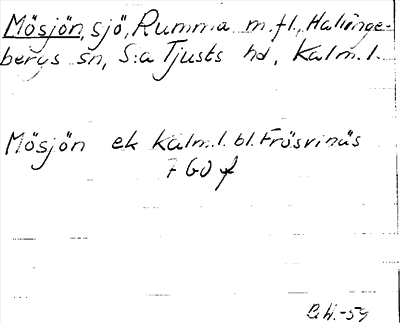 Mösjön, sjö, Rumma m.fl., Hallinge-
bergs sn, S:a Tjusts hd, Kalm. l.
Mösjön ek Kalm. l. bl. Frösvinäs
7 G0
-59